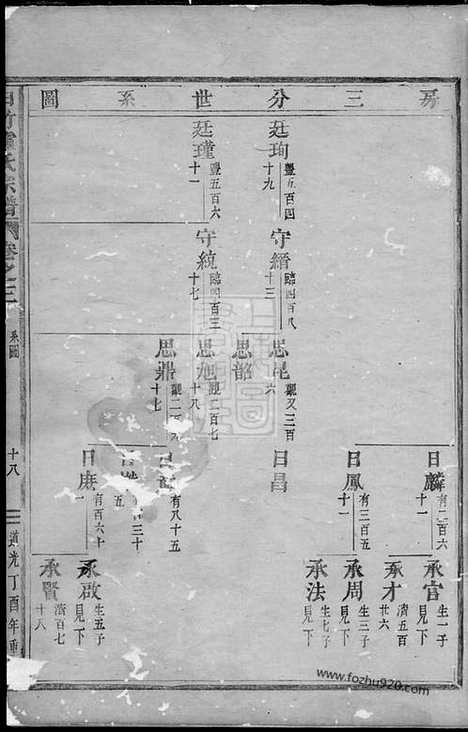 房三分世系圖
廷珣 豐五百四十九
廷瑾 豐五百六十一
守縉 臨四百八十三
守統 臨四百三十七
思昆 觀又三百六
思韶
思旭 觀二百七十八
思鼎 觀二百七十七
日麟 有二百六十一
日鳳 有三百五十一
日昌
日 有八十五
日 有三十五
日庚 有百六十一
承官 生一子見下
承才 濟五百廿六
承周 生三子見下
承法 生七子見下
承啟 生五子見下
承賢 濟百七十八
氏宗譜 卷之三
系圖
十八
道光丁酉年重
www.fozhu920.com